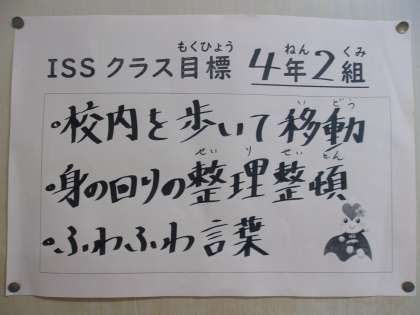 もくひょう ねん くみ
ISS クラス目標 4年2組
いどう
・校内を歩いて移動
せいりせいとん
・身の回りの整理整頓
・ふわふわ言葉